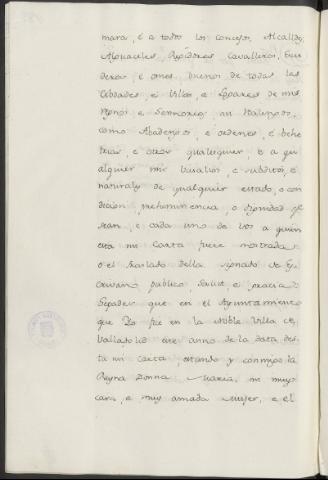 mara, e a todos los concejos, Alcalldes
Alguaciles, Regidores Cavalleros, Escu
deros, e omes buenos de todas las
Cibdades, e Villas, e Logares de mis
regnos e Sennorios, asi Realengos,
como Abadengos, e ordenes, e behe
trias, e otros qualesquier, e a qu
alquier mis Vasallos, e subditos, e
naturales de qualquier estado, o con
dicion, preheminencia, o dignidad q.e
sean, e cada uno de vos a quien
esta mi Carta fuere mostrada
o el traslado della signado de Es
crivano publico, salut, e gracia
Sepades que en el Ayuntamiento
que Yo fis en la Noble Villa de
Valladolid este anno de la data des
ta mi carta, estando y conmigo la
Reyna Donna Maria, mi muy
cara, e muy amada Muger, e el